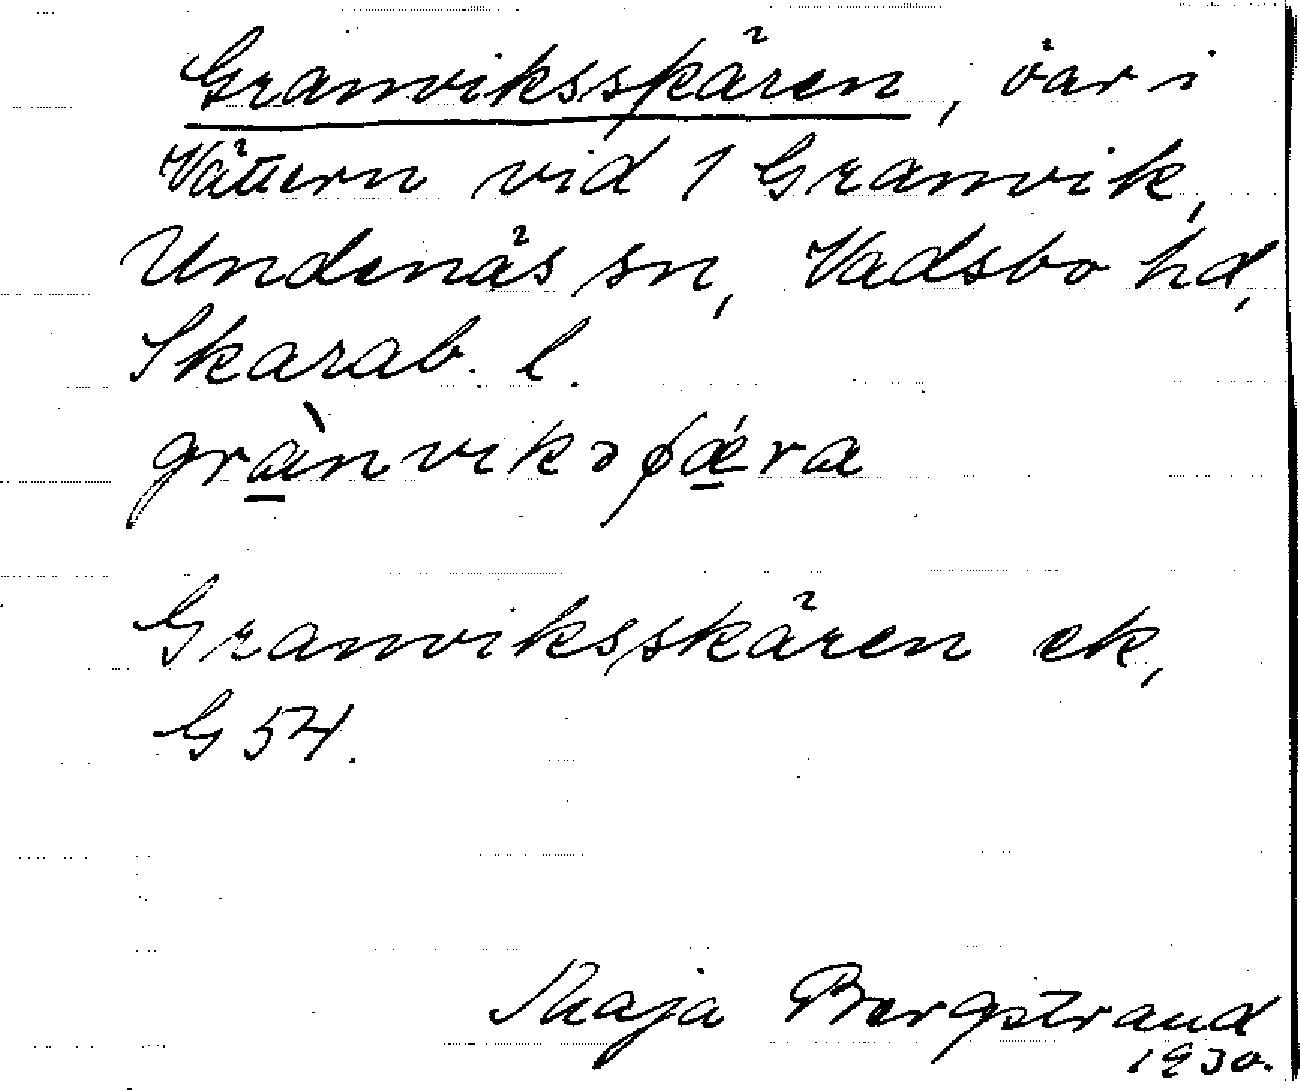 Granviksskären, öar i
Vättern vid 1 Granvik,
Undenäs sn, Vadsbo hd,
Skarab. l.
Granviksskären ek,
G 54.
Maja Bergstrand
1930.